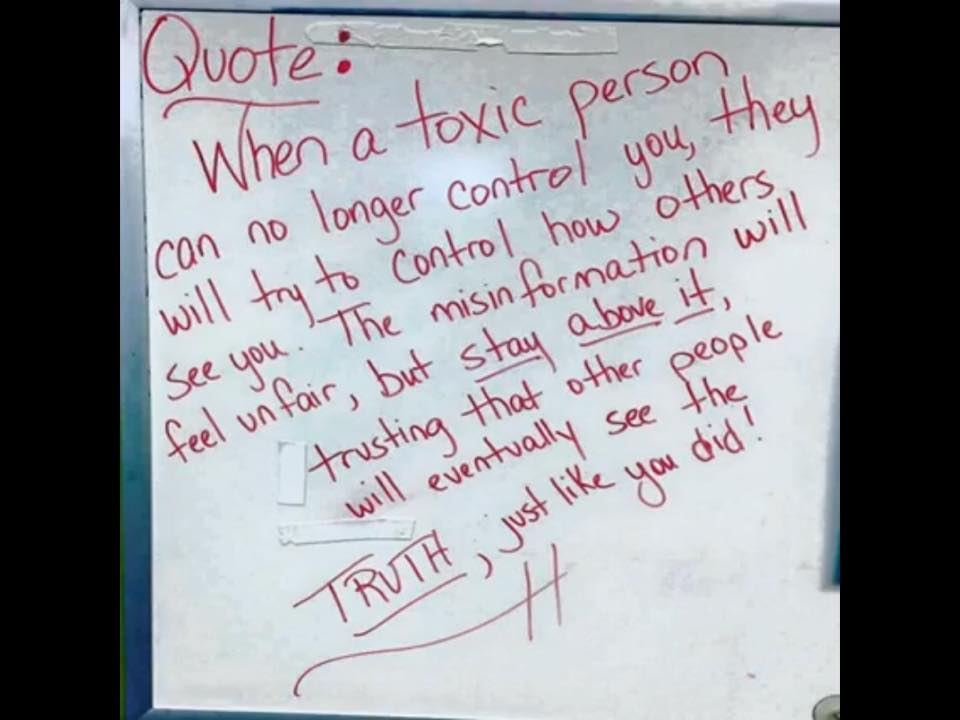 Quote:
When a toxic person
can no longer control you, they
will try to control how others
see you. The misinformation will
feel unfair, but stay above it,
trusting that other people
will eventually see the
TRUTH, just like you did!
H